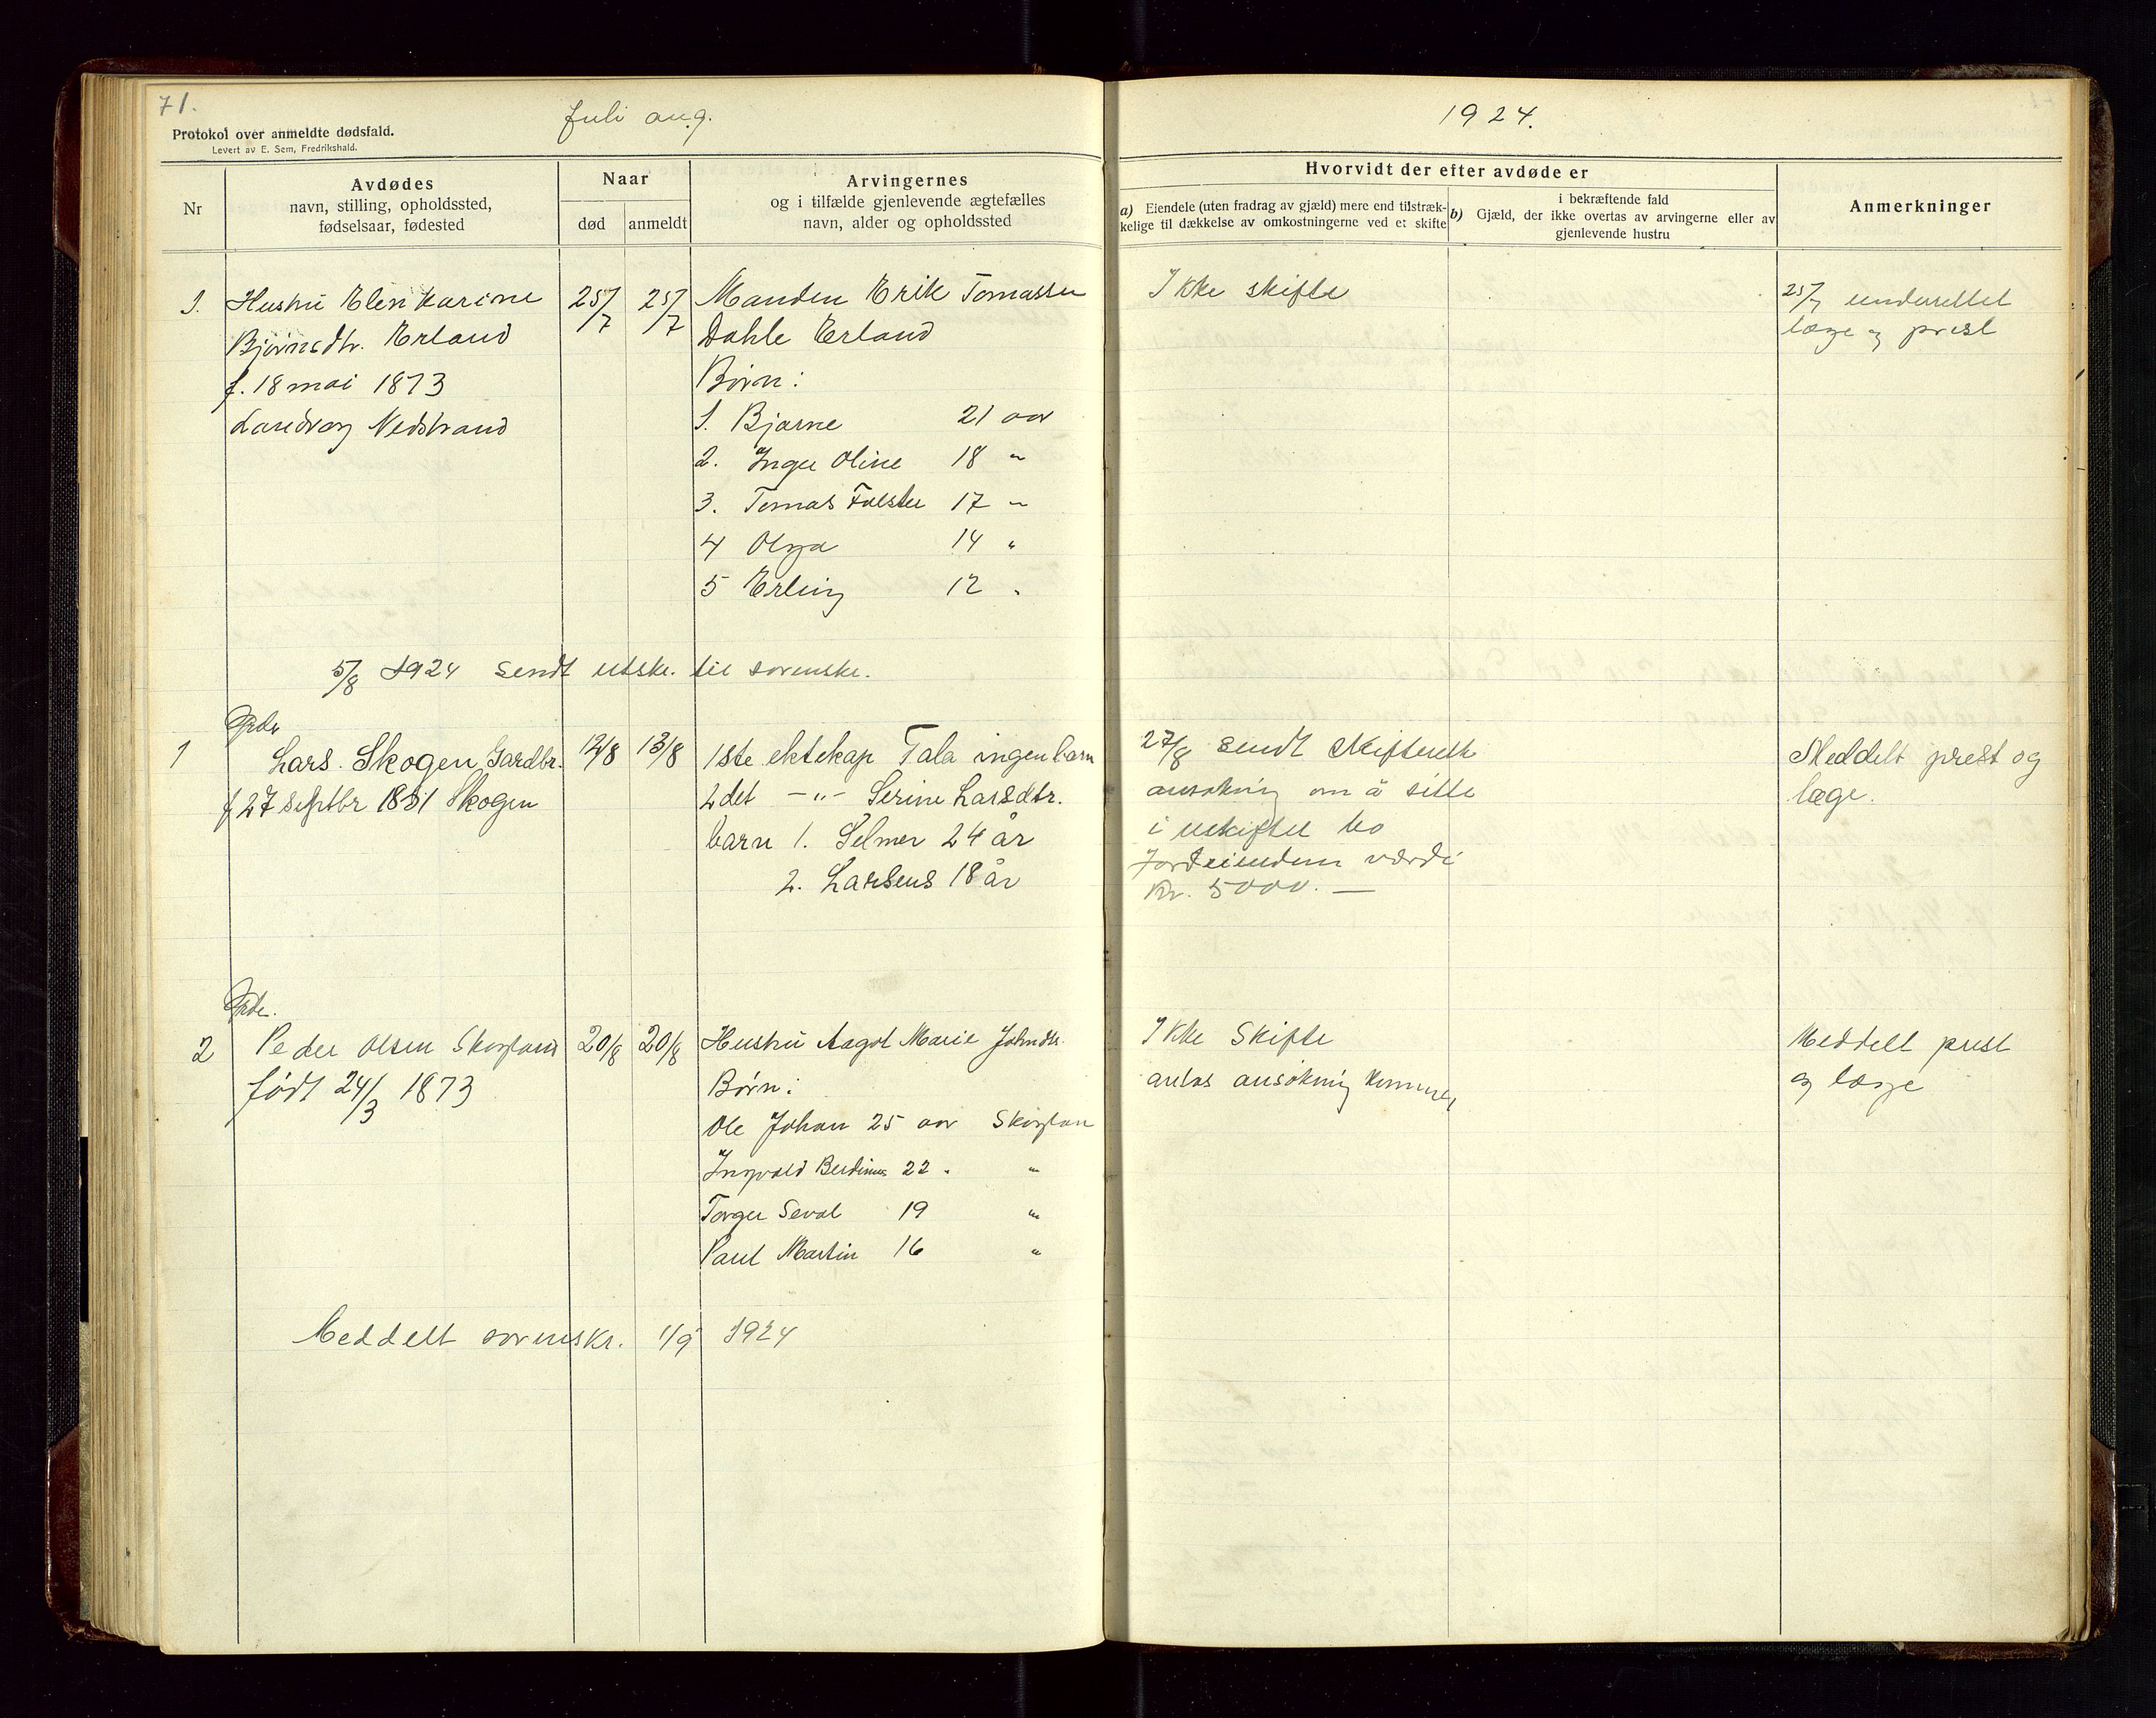 71.
Juli aug.
1924.
Protokol over anmeldte dødsfald.
Levert av E. Sem, Fredrikshald.
Nr
Avdødes
navn, stilling, opholdssted,
fødselsaar, fødested
Naar
død
anmeldt
Arvingernes
og i tilfælde gjenlevende ægtefælles
navn, alder og opholdssted
Hvorvidt der efter avdøde er
a) Eiendele (uten fradrag av gjæld) mere end tilstræk-
kelige til dækkelse av omkostningerne ved et skifte
b)
i bekræftende fald
Gjæld, der ikke overtas av arvingerne eller av
gjenlevende hustru
Anmerkninger
1. Hustru Elen Karine 25/7 25/7 Manden Erik Tomassen Ikke skifte 25/7 underettet
Bjørnsdtr. Erland Dahle Erland læge og prest
f. 18 mai 1873 Børn:
Nedstrand 1. Bjarne 21 aar
2. Inger Oline 18 "
3. Tomas 17 "
4 Olga 14 "
5 Erling 12 "
5/8 1924 sendt utskr. til sorenskr.
1 Lars. Skogen Gardbr. 12/8 13/8 1ste ektskap Tala ingen barn 27/8 sendt skifterett Meddelt prest og
f 27 septbr 1851 Skogen 2det -"- Serine Larsdtr. ansøkning om å sitte læge.
barn 1. Selmer 24 år i uskiftet bo
2. 18 år Jordeiendom værdi
Kr. 5000. —
2 Peder Olsen 20/8 20/8 Hustru Aagot Marie Johndtr. Ikke Skifte Meddelt prest
født 24/3 1873 Børn: ansøkning kommer og læge
Ole Johan 25 aar
Ingvald 22 " "
Torger Seval 19 "
Paul Martin 16 "
Meddelt sorenskr. 1/9 1924